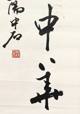 中華
陽中石